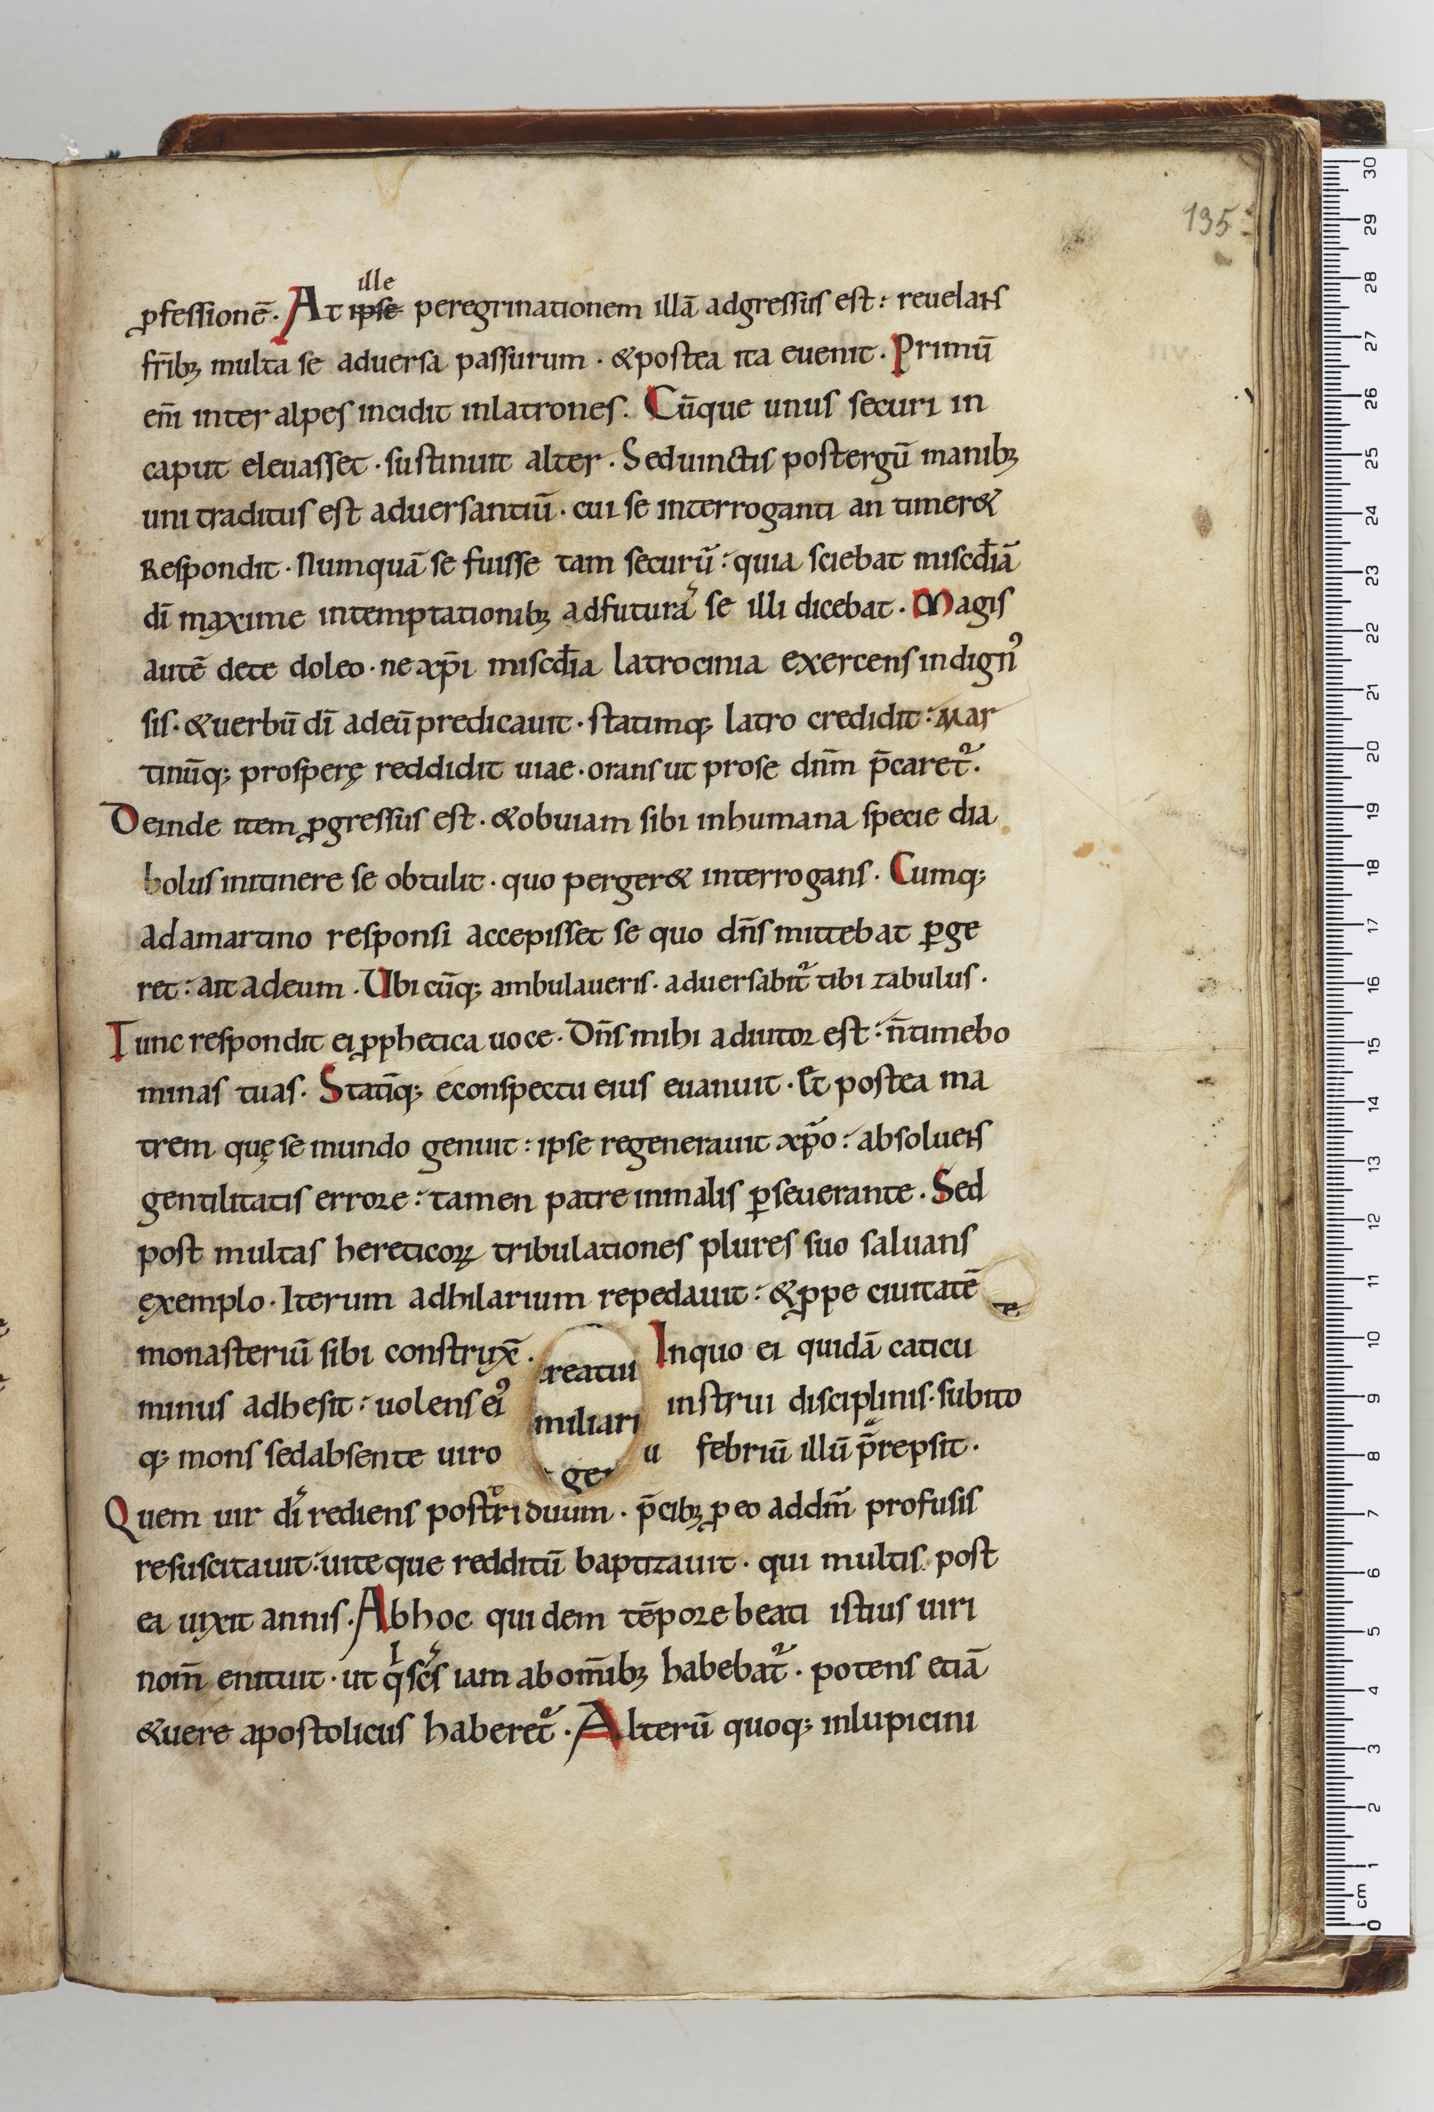 195
ille
ꝓfessionē. At ipse peregrinationem illā adgressus est: reuelans
fr̄ibꝫ multa se aduersa passurum. &postea ita euenit. Primū
eni̅ inter alpes incidit inlatrones. Cūque unus securi in
caput eleuasset. sustinuit alter. Seduinctis postergū manibꝫ
uni traditus est aduersantiū. cui se interroganti an timer&
Respondit. Numquā se fuisse tam securū: quia sciebat misc̄dīā
dī maxime intemptationibꝫ adfuturā se illi dicebat. Magis
autē dete doleo. ne xp̄i misc̄dia latrocinia exercens indignꝰ
sis. &uerbū dī adeū predicauit. statimqꝫ latro credidit: Mar
tinūqꝫ prosperę reddidit uiae. orans ut prose dn̄m p̄caret̉.
Deinde item ꝓgressus est. &obuiam sibi inhumana specie dia
bolus initinere se obtulit. quo perger& interrogans. Cumqꝫ
adamartino responsi accepisset se quo dn̄s mittebat ꝑge
ret: ait adeum. Ubi cūqꝫ ambulaueris. aduersabit̉ tibi zabulus.
Tunc respondit ei ꝓphetica uoce. Dn̄s mihi adiutor est: n̄ timebo
minas tuas. Statīqꝫ econspectu eius euanuit. Et postea ma
trem quę se mundo genuit: ipse regenerauit xp̄o: absoluens
gentilitatis errore: tamen patre inmalis ꝑseuerante. Sed
post multas hereticoꝝ tribulationes plures suo saluans
exemplo. Iterum adhilarium repedauit: &ꝓpe ciuitatē
monasteriū sibi construx̄. Inquo ei quidā caticu
minus adhesit: uolens eiꝰ instrui disciplinis. subito
qꝫ mons sedabsente uiro u febriū illū p̄repsit.
reatui
miliari
ge
Quem uir dī rediens post triduum. p̄cibꝫ ꝓ eo addm̄ profusis
resuscitauit: uite que redditū baptizauit. qui multis post
ea uixit annis. Abhoc qui dem tēpore beati istius uiri
nom̄ enituit. ut qͥ sc̄s iam abom̄ibꝫ habebat̉. potens etiā
&uere apostolicus haberet̉. Alterū quoqꝫ inlupicini